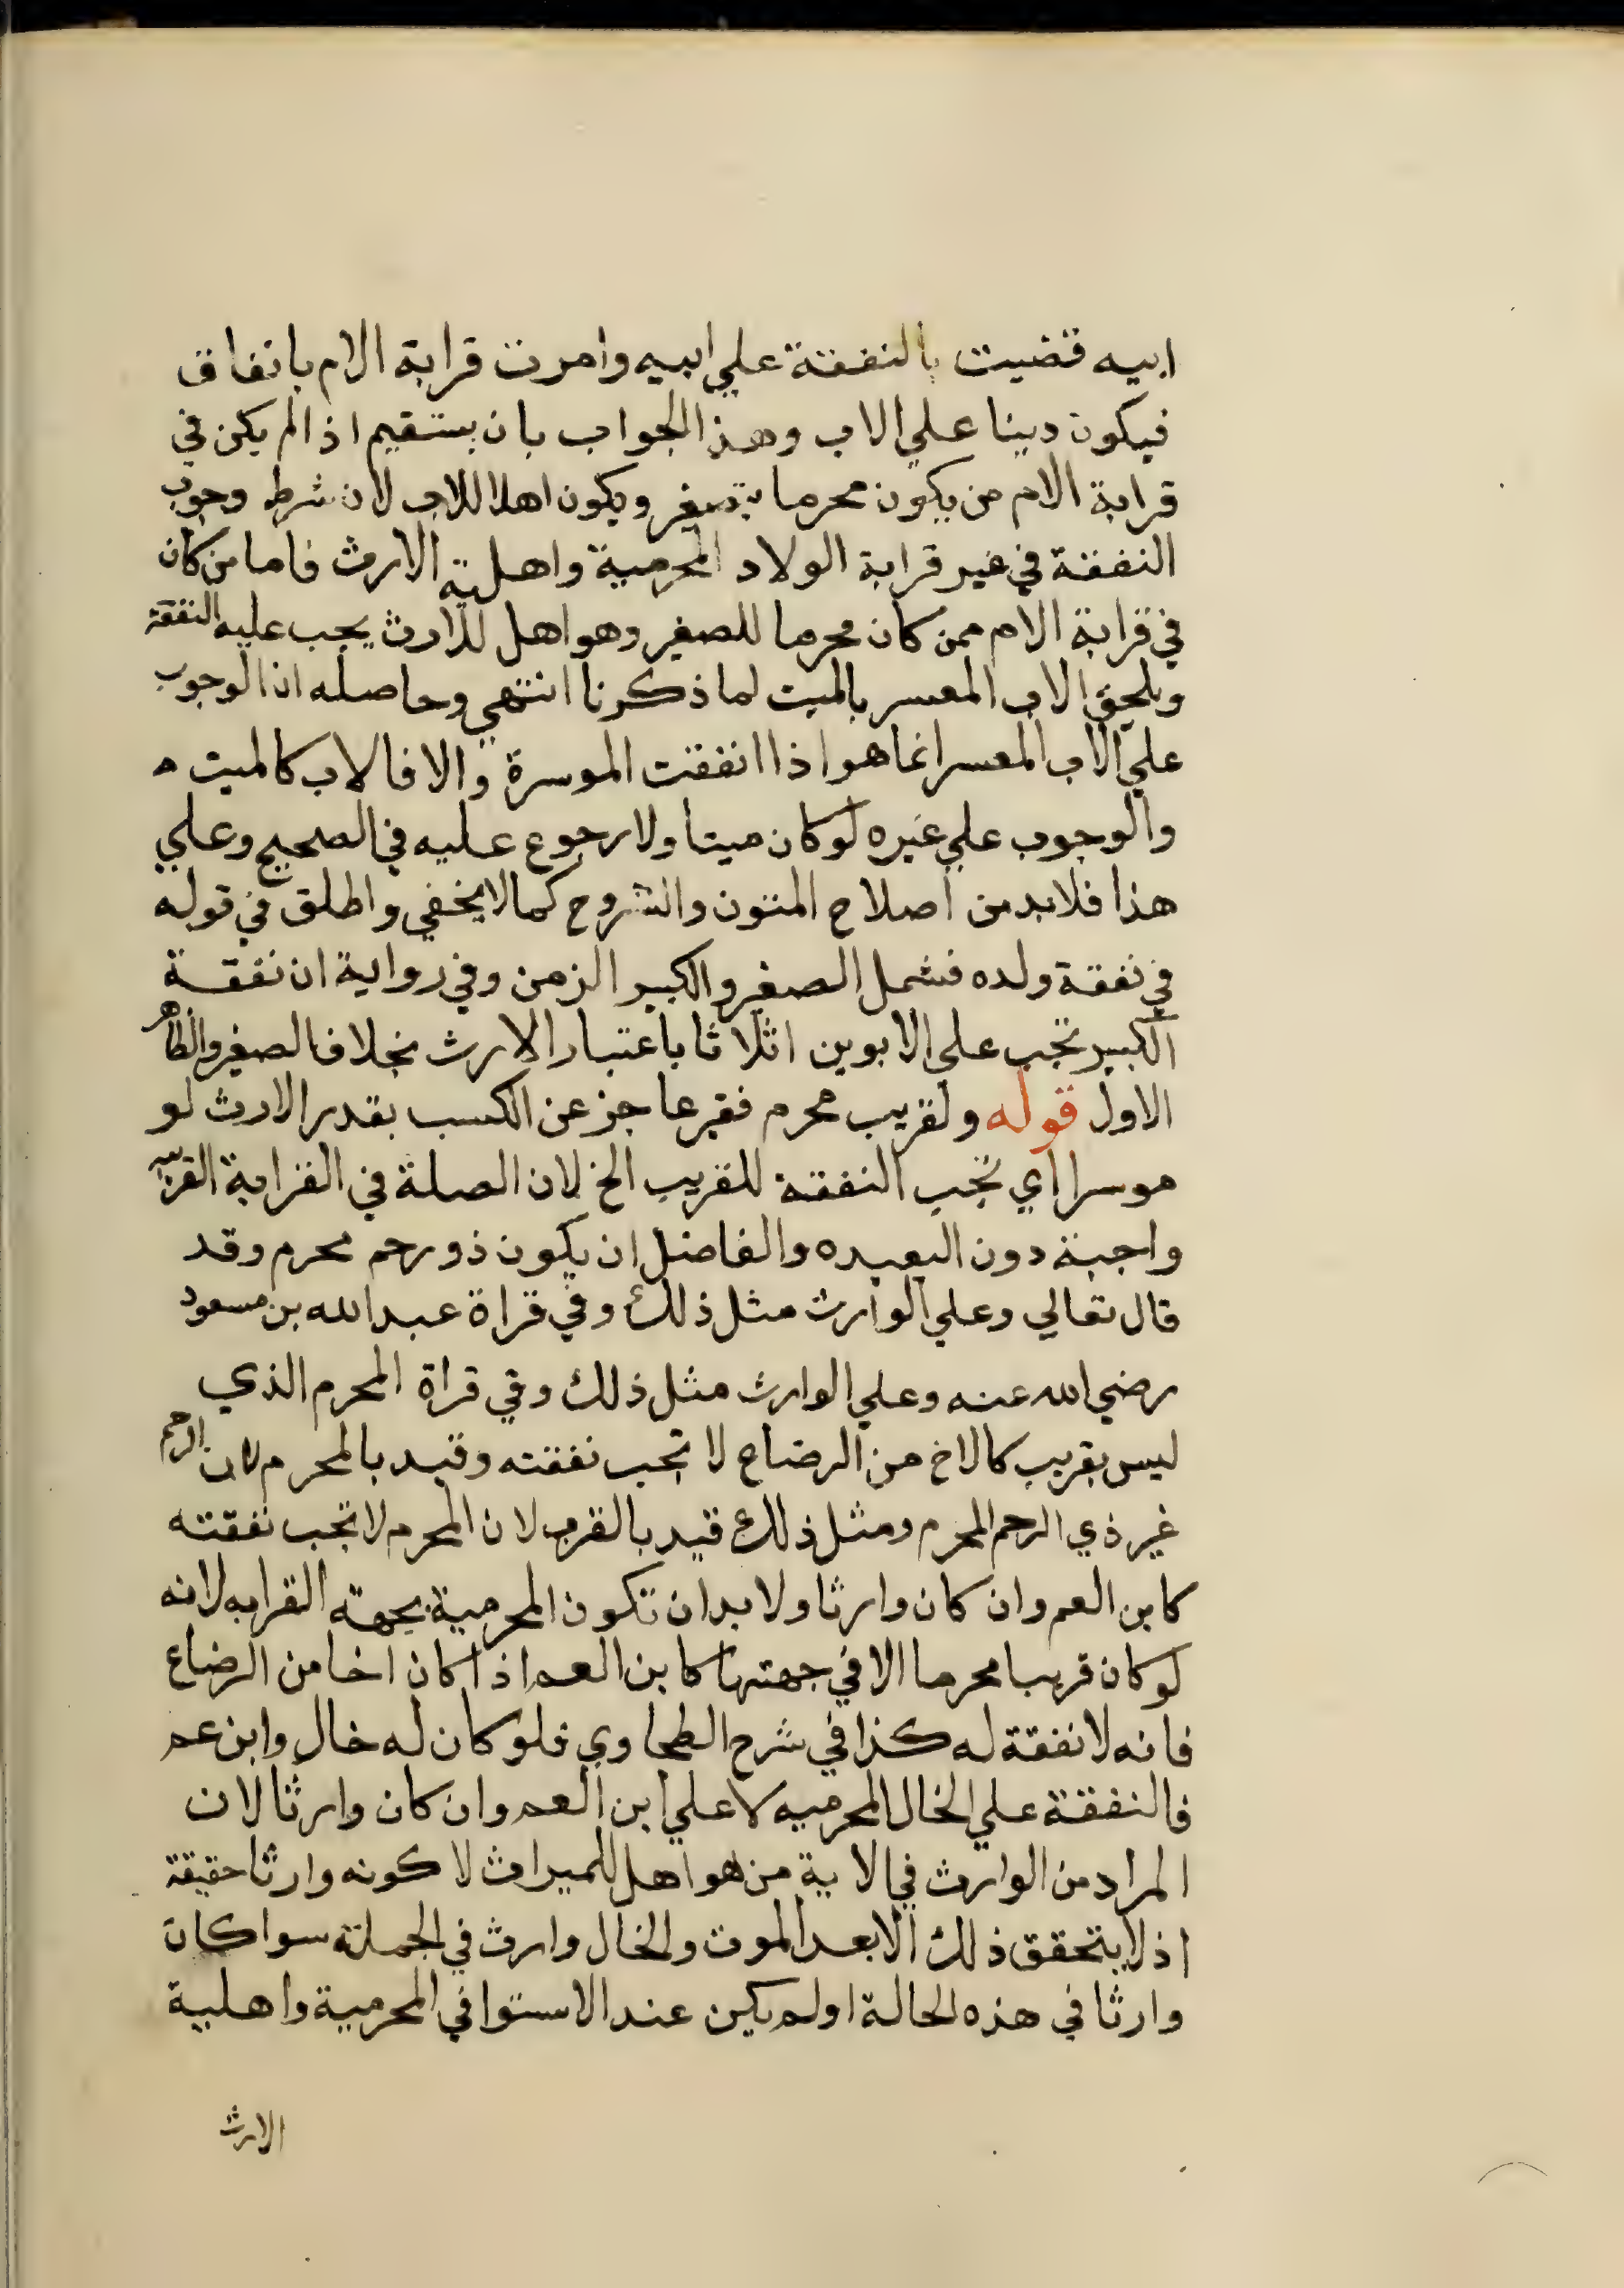 ابيه قضيت بالنفقة علي ابيه وامرت قرابة الام بانفاق
فيكون دينا علي الاب وهذا الجواب بان يستقيم اذا لم يكن في
قرابة الام من يكون محرما ويكون اهلا للاب لان شرط وجوب
النفقة في غير قرابة الولاد المحرمية واهلية الارث فاما من كان
في قرابة الام ممن كان محرما للصغير وهو اهل للارث يجب عليه النفقة
ويلحق الاب المعسر بالميت لما ذكرنا انتهي وحاصله ان الوجوب
علي الاب المعسر انما هو اذا انفقت الموسرة والا فالاب كالميت ه
والوجوب علي غيره لو كان ميتا ولا رجوع عليه في الصحيح وعلي
هذا فلا بد من اصلاح المتون والشروح كما لا يخفي واطلق في قوله
في نفقة ولده فشمل الصغير والكبير الزمن وفي رواية ان نفقة
الكبير تجب علي الابوين اثلاثا باعتبار الارث بخلاف الصغير والظاهر
الاول قوله ولقريب محرم فقير عاجز عن الكسب بقدر الارث لو
موسرا اي تجب النفقة للقريب الخ لان الصلة في القرابة القريبه
واجبة دون البعيده والفاضل ان يكون ذو رحم محرم وقد
قال تعالي وعلي الوارث مثل ذلك وفي قراة عبد الله بن مسعود
رضي الله عنه وعلي الوارث مثل ذلك وفي قراة المحرم الذي
ليس بقريب كالاخ من الرضاع لا تجب نفقته وقيد بالمحرم لان الرحم
غير ذي الرحم المحرم ومثل ذلك قيد بالقرب لان المحرم لا تجب نفقته
كابن العم وان كان وارثا ولا بد ان تكون المحرمية بجهة القرابه لانه
لو كان قريبا محرما الا في جهتها كابن العم اذا كان اخا من الرضاع
فانه لا نفقة له كذا في شرح الطحاوي فلو كان له خال وابن عم
فالنفقة علي الخال المحرميه لا علي ابن العم وان كان وارثا لان
المراد من الوارث في الاية من هو اهل للميراث لا كونه وارثا حقيقة
اذ لا يتحقق ذلك الا بعد الموت والخال وارث في الجملة سوا كان
وارثا في هذه الحالة او لم يكن عند الاستوا في المحرمية واهلية
الارث